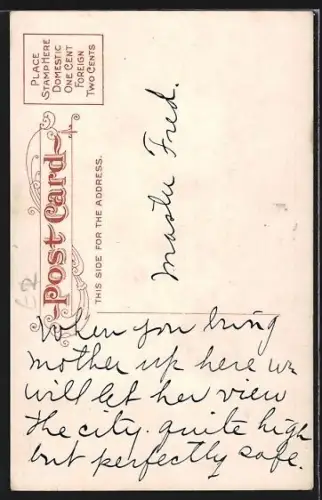 PLACE
STAMP HERE
DOMESTIC
ONE CENT
FOREIGN
TWO CENTS
Post Card
THIS SIDE FOR THE ADDRESS.
Master Fred.
62
When you bring
mother up here we
will let her view
the city. quite high
but perfectly safe.